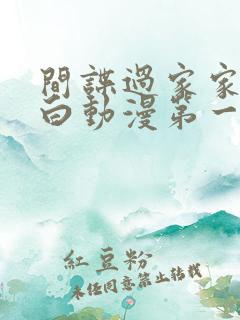 間諜過家家
白動漫第一
紅豆粉
未經同意禁止轉載